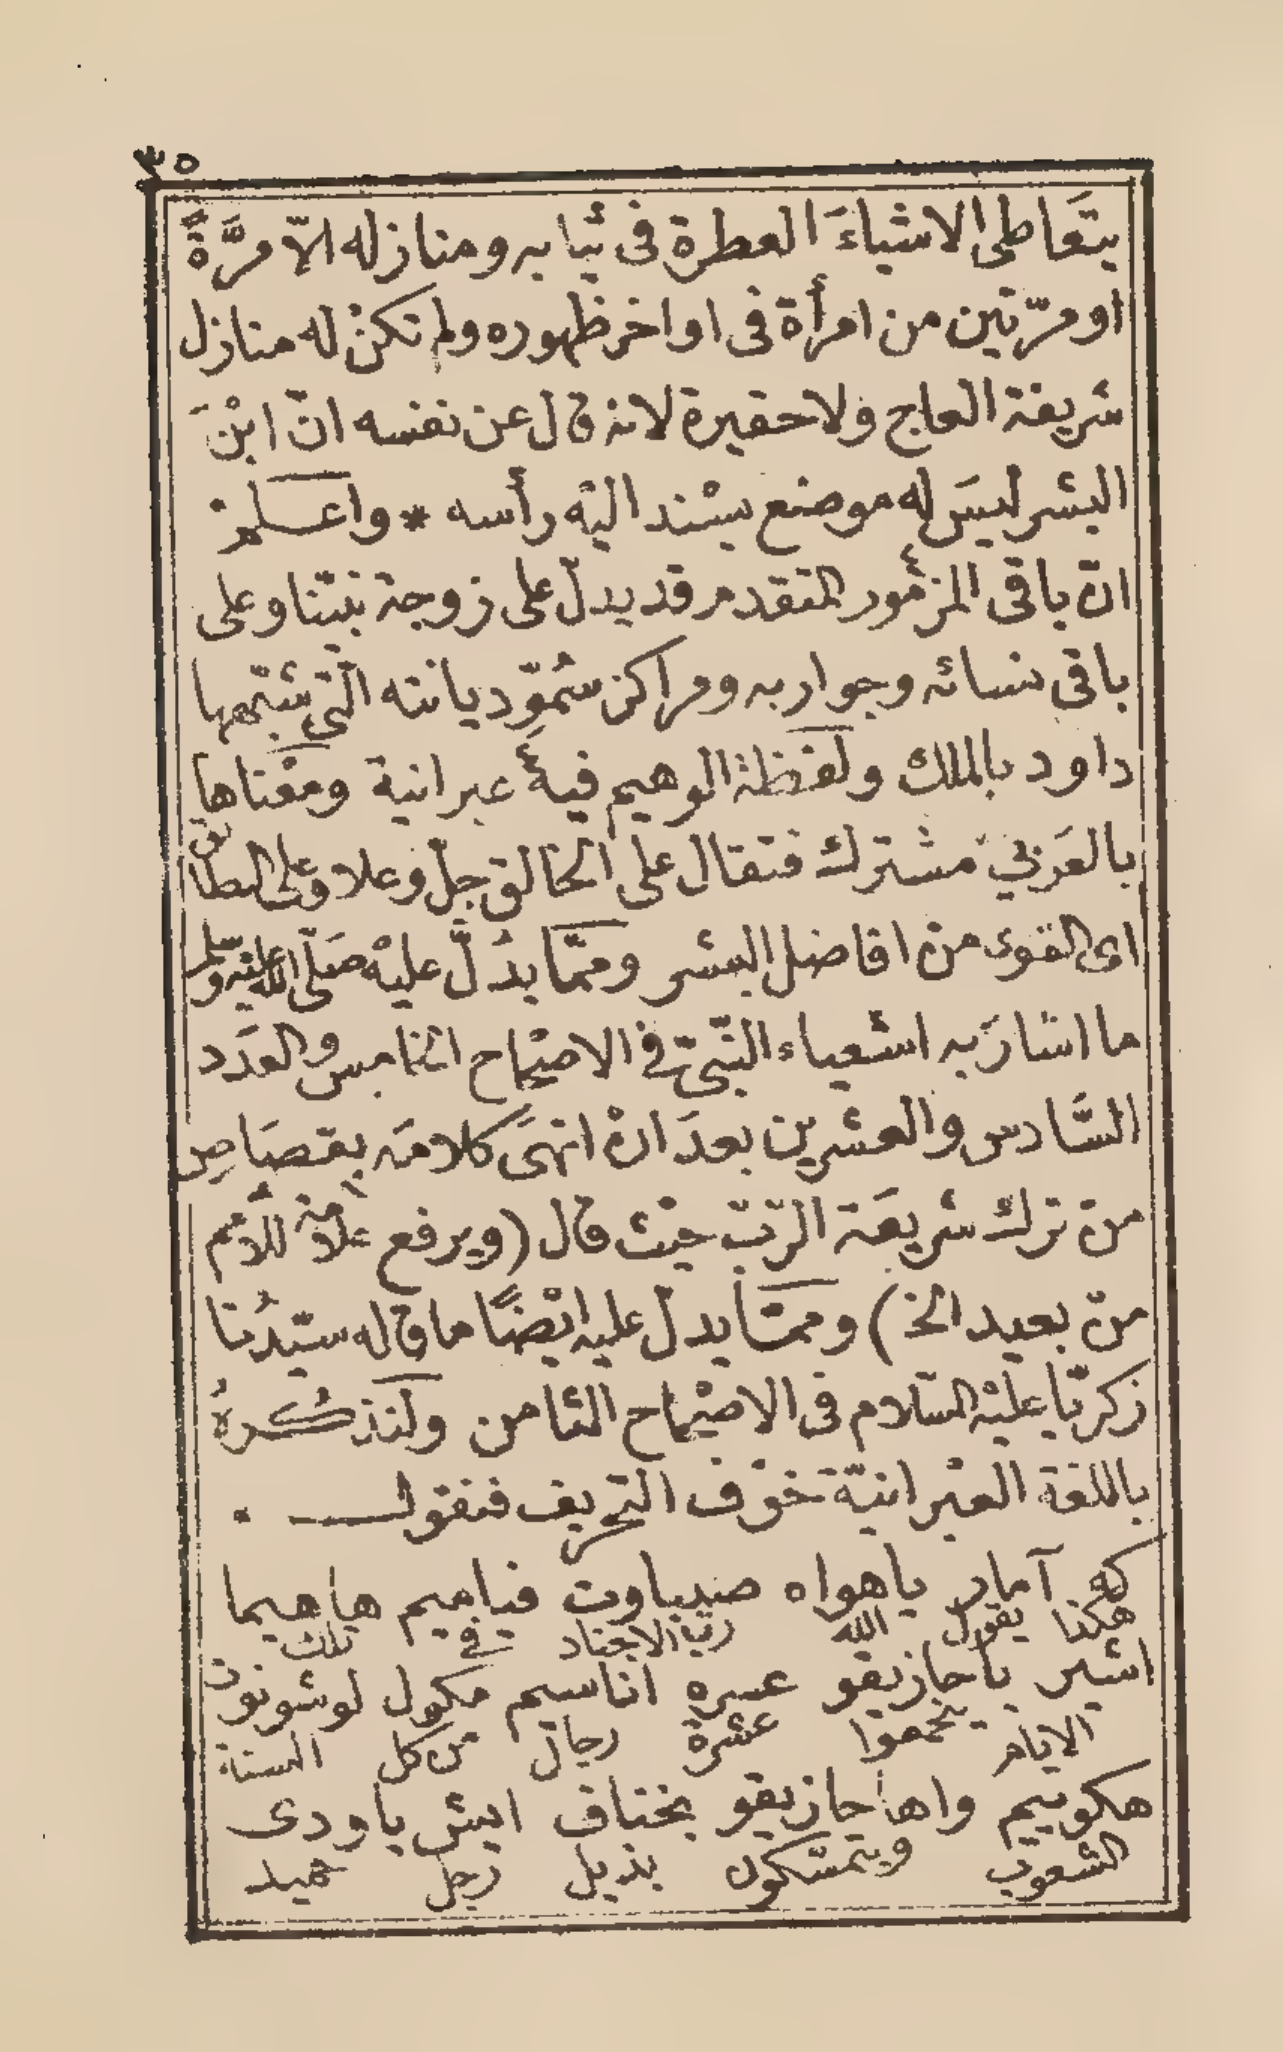 ٣٥
يتَعاطى الاشياءَ العطرة فى ثيابه ومنازله الّا مرَّةً
او مرّتين من امرأة فى اواخر ظهوره ولم تكنْ له منازل
شريفة العاج ولا حقيرة لانه قال عن نفسه انّ ابْنَ
البشر ليسَ له موضع يسْند اليْه رأسه * واعلمْ
انّ باقى المزمُور المتقدم قد يدلّ على زوجة نبيّنا وعلى
باقى نسائه وجواربه ومراكز سُموِّ ديانته الّتى شبّهها
داود بالملك ولفظة الوهيم فيهِ عبرانية ومعْناها
بالعَربيّ مشترك فتقال على الخالق جلّ وعلا وعلى الطائق
اى القوى منْ افاضل البشر وممّا يدُلَّ عليْه صَلّى اللّه عليْه وسلّم
ما اشارَ به اشعياء النّبىّ فى الاصْحاح الخامس والعدَد
السَّادس والعشرين بعدَ انْ انهَى كلامَه بقصَاصِ
منْ ترك شريعَة الرّبّ حيْث قال (ويرفع علامة للأمم
منْ بعيد الخ) وممّا يدلّ عليه ايْضًا ما قاله سيّدُنا
زكريّا عليْه السّلام فى الاصْحاح الثامن ولنذكُرهُ
باللغة العبْرانيّة خوْف التحريف فنقول .
كه آمار ياهواه صيباوت فياميم هاهيما
هكذا يقول اللّه ربّ الاجناد فى تلك
اشير ياحازيقو عسره اناسيم مكول لوشونوت
الايام يتجمعوا عشرة رجال من كل السنة
هكوييم واهاحازيقو بخناف ايش ياودى
الشعوب ويتمسّكون بذيل رجل حميد